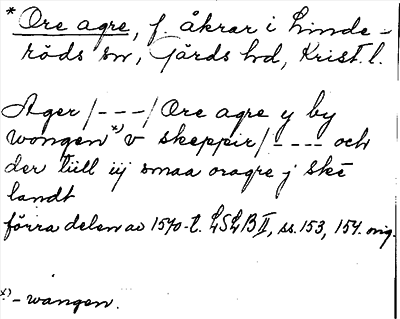 * Ore agre, f. åkrar i Linde-
röds sn, Gärds hd, Krist. l.
Ager /---/ Ore agre y by
wongen *) v skeppir /---- och
der till iij smaa oragre j ske
landt
förra delen av 1570-t. LSLB II, ss. 153, 154. orig.
*) - wangen.